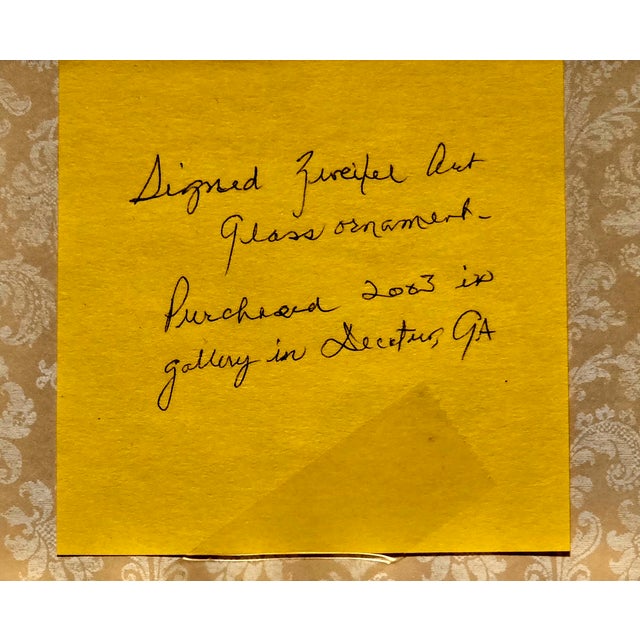 Signed Zweifel Art
Glass ornament.
Purchased 2003 in
gallery in Decatur, GA